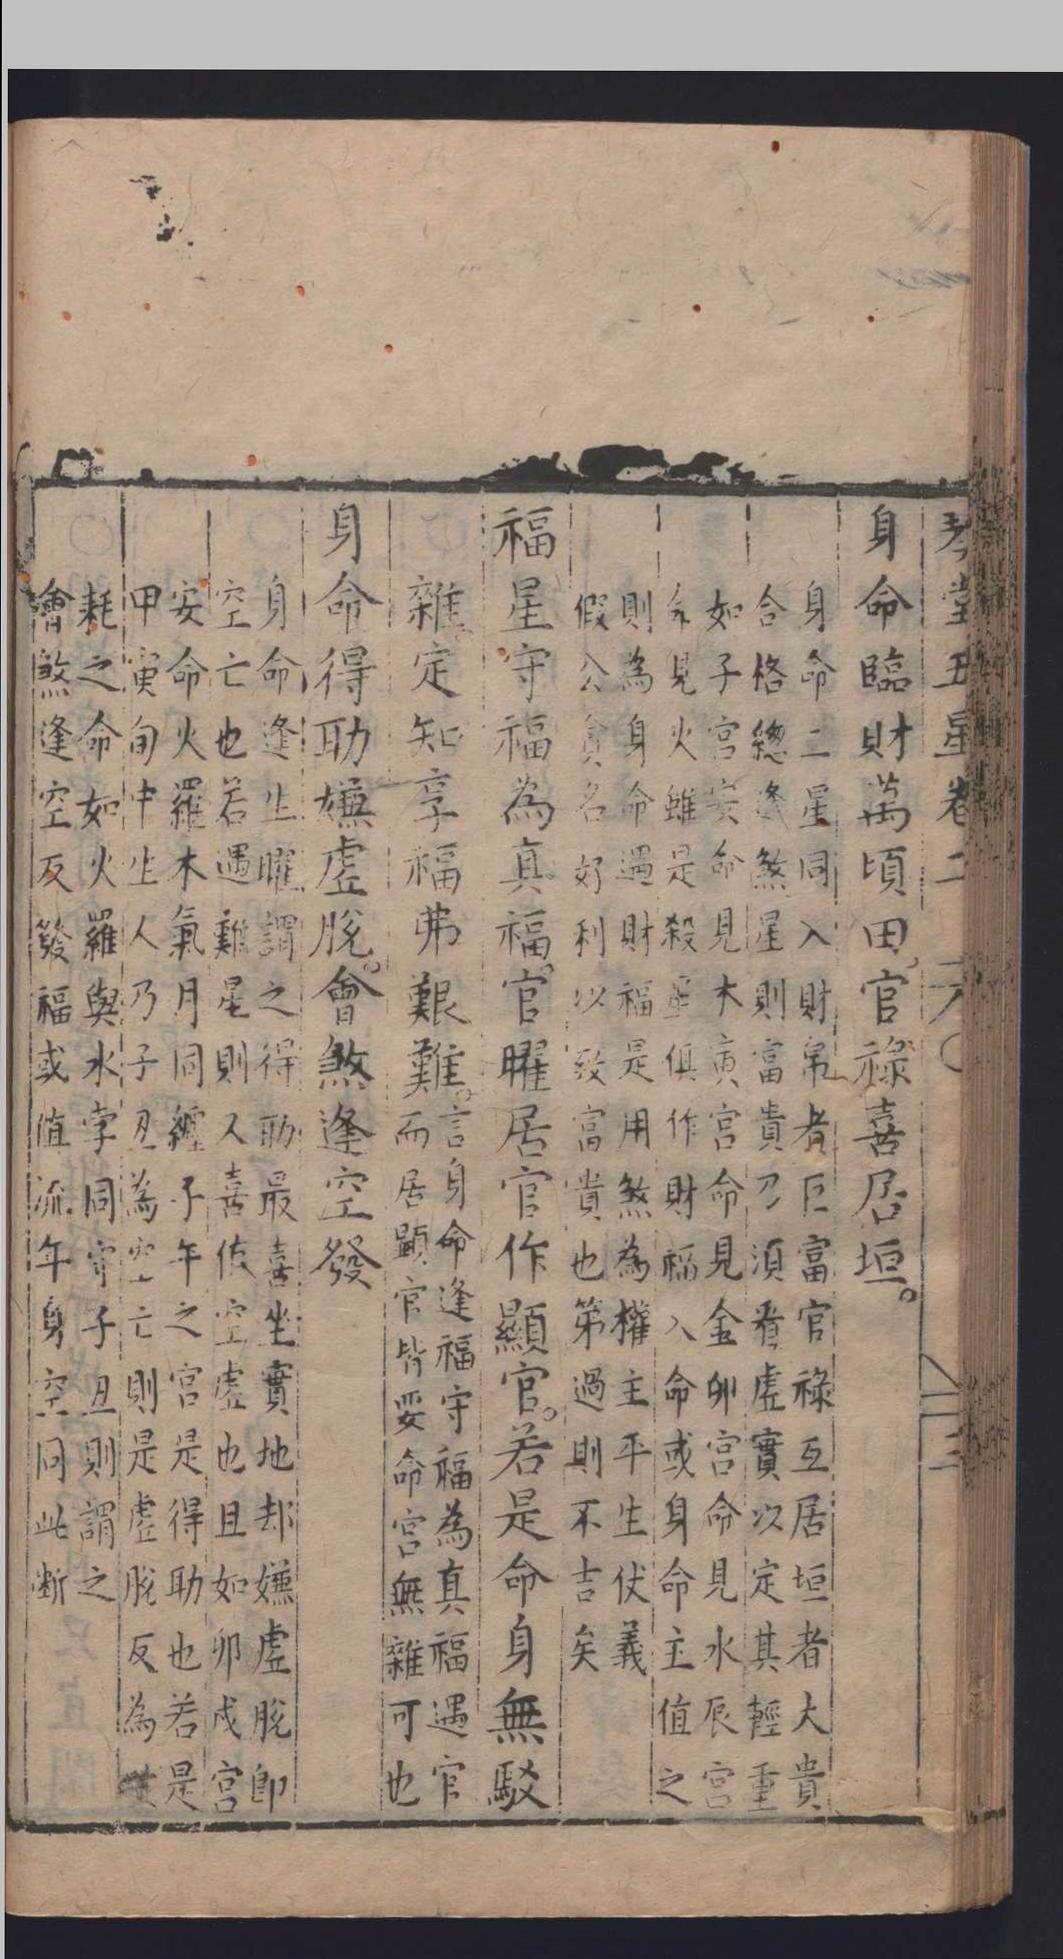 琴堂五星卷二 六〇
身命臨財萬頃田官祿喜居垣。
身命二星同入財帛者巨富官祿互居垣者大貴
合格總逢煞星則富貴刀須看虛實以定其輕重
如子宮安命見木寅宮命見金卯宮命見水辰宮
命見火雖是殺星俱作財福入命或身命主值之
則為身命遇財福是用煞為權主平生伏義
假公貪名好利以致富貴也第過則不吉矣
福星守福為真福。官曜居官作顯官。若是命身無駁
雜。定知享福弗艱難。言身命逢福守福為真福遇官
而居顯官皆要命宮無雜可也
身命得助嫌虛脫。會煞逢空發
身命逢生曜謂之得助最喜坐實地却嫌虛脫即
空亡也若遇難星則又喜伎空虛也且如卯戌宮
安命火羅木氣月同纏子午之宮是得助也若是
甲寅旬中生人乃子丑為空亡則是虛脫反為
耗之命如火羅與水孛同守子丑則謂之
會煞逢空反發福或值流年身空同此斷